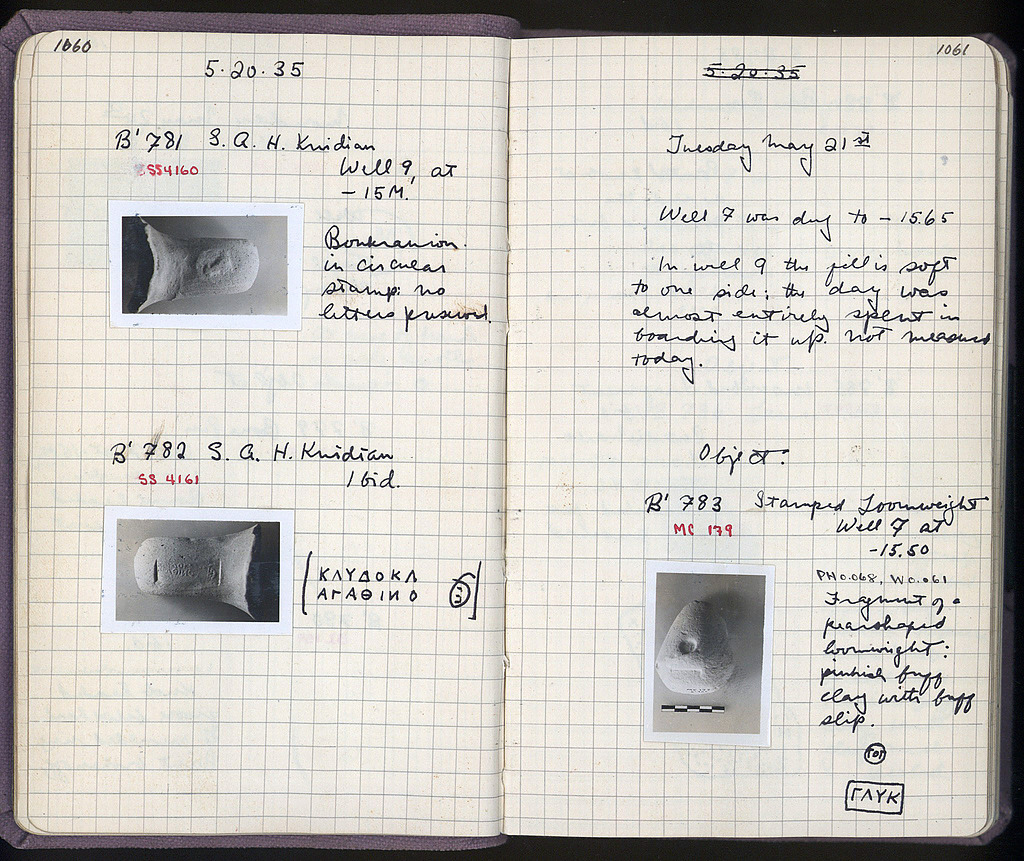 1060
5.20.35
B' 781 S. A. H. Knidian
SS4160
Well 9, at
- 15M.
Boukranion
in circular
stamp: no
letters preserved.
B' 782 S. A. H. Knidian
SS 4161
Ibid.
ΚΛΥΔΟΚΛ
ΑΓΑΘΙΝΟ
1061
5.20.35
Tuesday May 21st
Well 7 was dug to - 15.65
In well 9 the fill is soft
to one side; the day was
almost entirely spent in
boarding it up. Not measured
today.
Object:
B' 783 Stamped Loomweight
MC 179
Well 7 at
-15.50
PH 0.068, W 0.061
Fragment of a
pearshaped
loomweight:
pinkish buff
clay with buff
slip.
ΓΛΥΚ